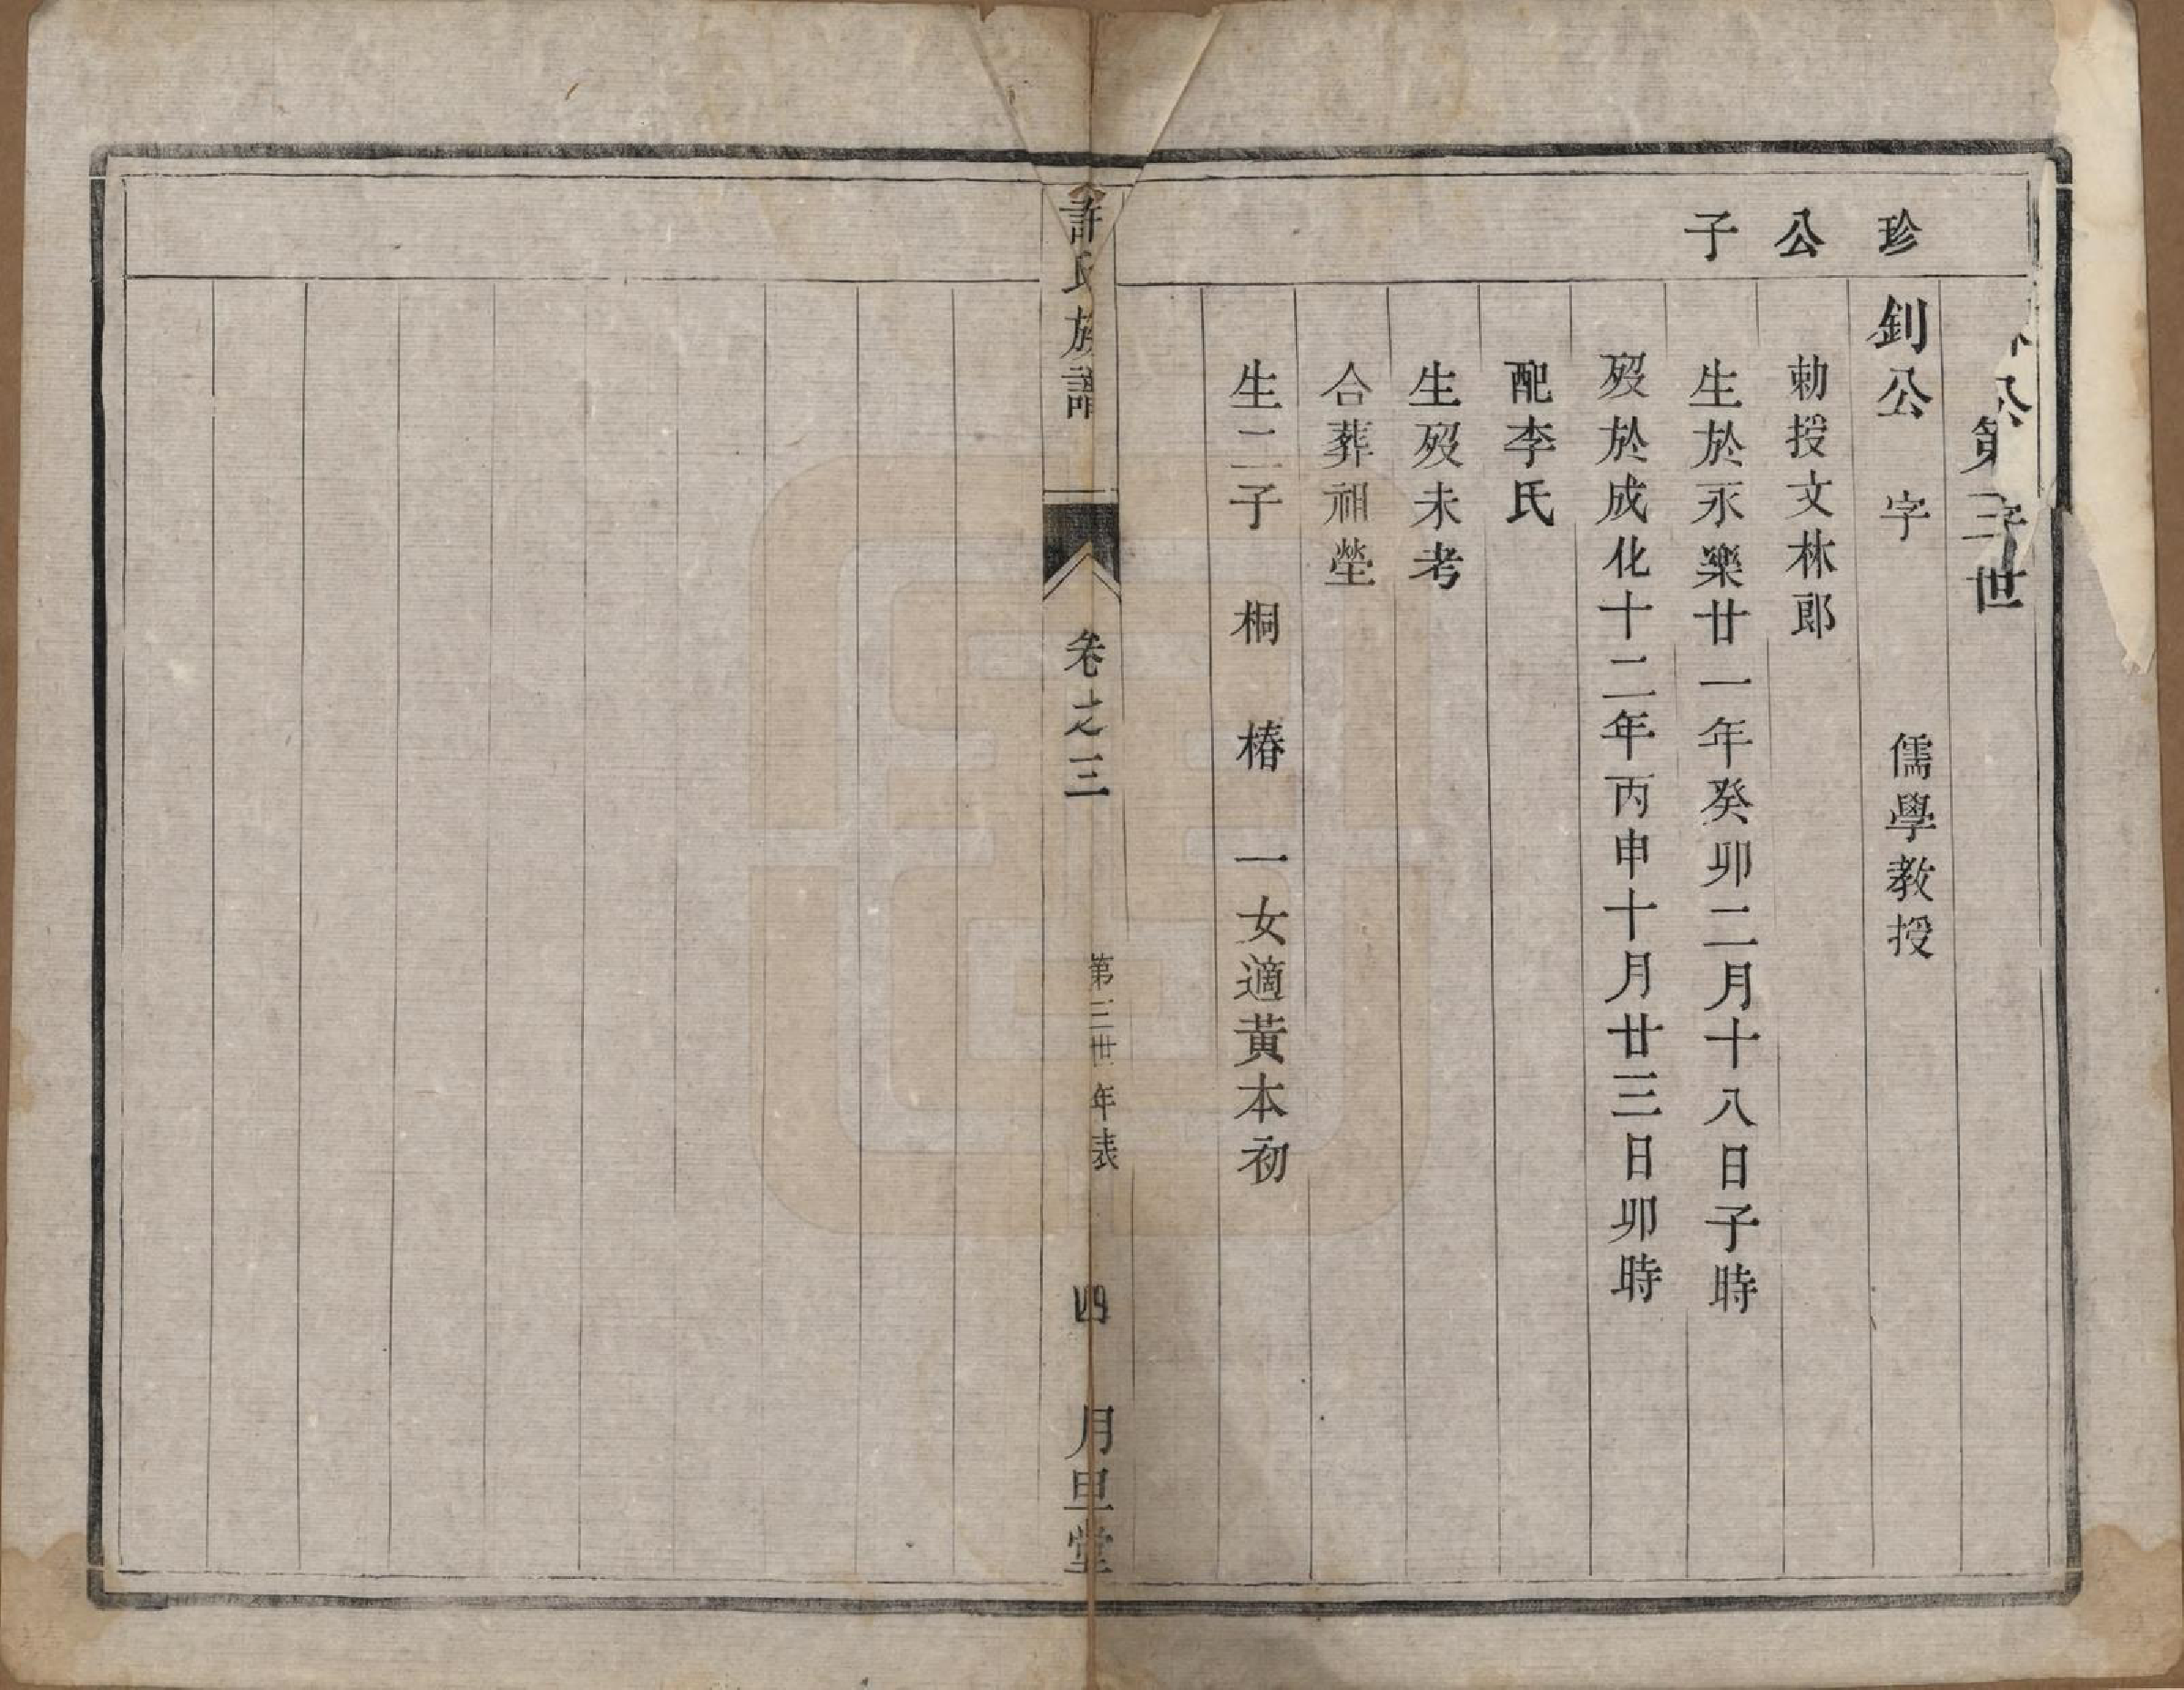 珍公子
第三世
釗公　字　　　儒學教授
勅授文林郎
生於永樂廿一年癸卯二月十八日子時
歿於成化十二年丙申十月廿三日卯時
配李氏
生歿未考
合葬祖塋
生二子　桐　椿　一女適黃本初
許氏族譜　卷之三　第三世年表　四　月旦堂